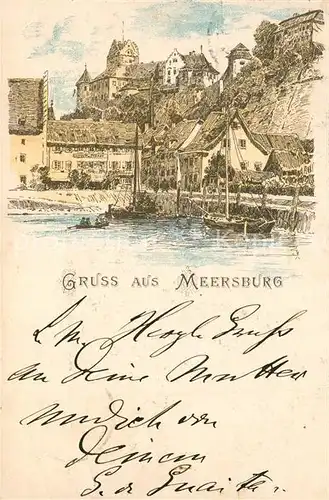 GRUSS AUS MEERSBURG
L. M. Herzl. Gruß
an Deine Mutter
und Dich von
Deinem